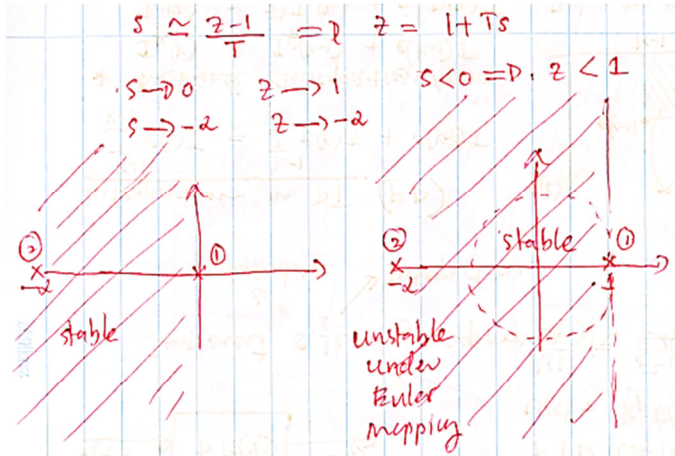 s ≃ z-1/T => z = 1+Ts
s→0 z→1 s<0 => z<1
s→-2 z→-2
② ① stable ② ①
-2 -2 1
stable
unstable
under
Euler
mapping